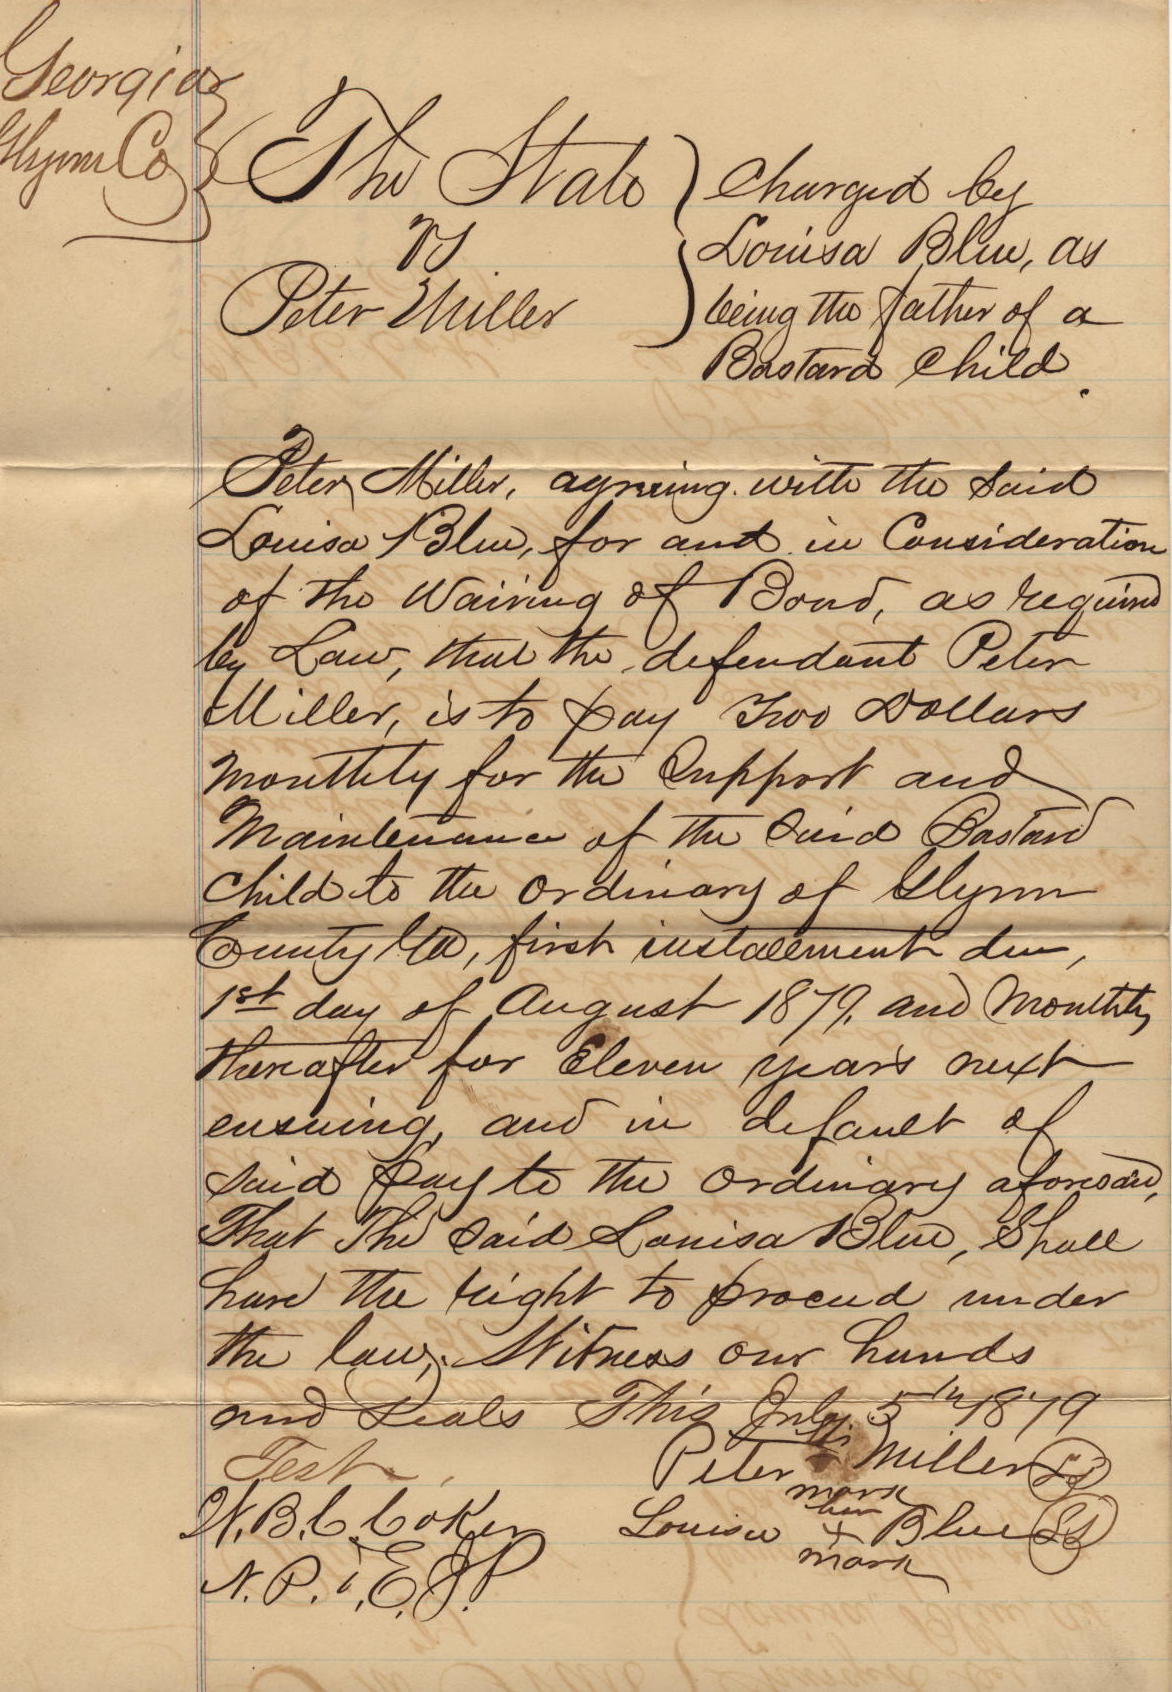 Georgia
Glynn Co
The State
vs
Peter Miller
Charged by
Louisa Blue, as
being the father of a
Bastard Child.
Peter Miller, agreeing with the said
Louisa Blue, for and in Consideration
of the Waiving of Bond, as required
by Law, that the defendant Peter
Miller, is to pay Two Dollars
Monthly for the Support and
Maintenance of the said Bastard
Child to the Ordinary of Glynn
County Ga, first installment due,
1st day of August 1879, and Monthly
thereafter for Eleven years next
ensuing, and in default of
said pay to the Ordinary aforesaid,
That The said Louisa Blue, Shall
have the right to proceed under
the law, Witness our hands
and Seals This July 5th 1879
Peter his Miller LS
mark
Test.
Louisa her x Blue LS
mark
W.B.C. Coker
N.P. & E.J.P